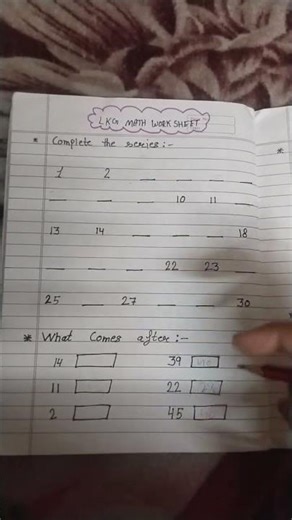 LKG MATH WORKSHEET
* Complete the series:-
1 2 __ __ __ __
__ __ __ 10 11 __
13 14 __ __ __ 18
__ __ __ 22 23 __
25 __ 27 __ __ 30
* What Comes after:-
14 39
11 22
2 45